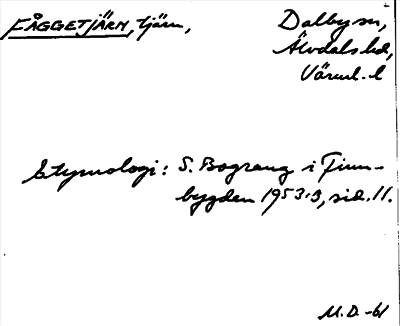 FÅGGETJÄRN, tjärn, Dalby sn,
Älvdals hd,
Värml. l
Etymologi: S. Bograng i Finn-
bygden 1953:3, sid. 11.
M.D. -61